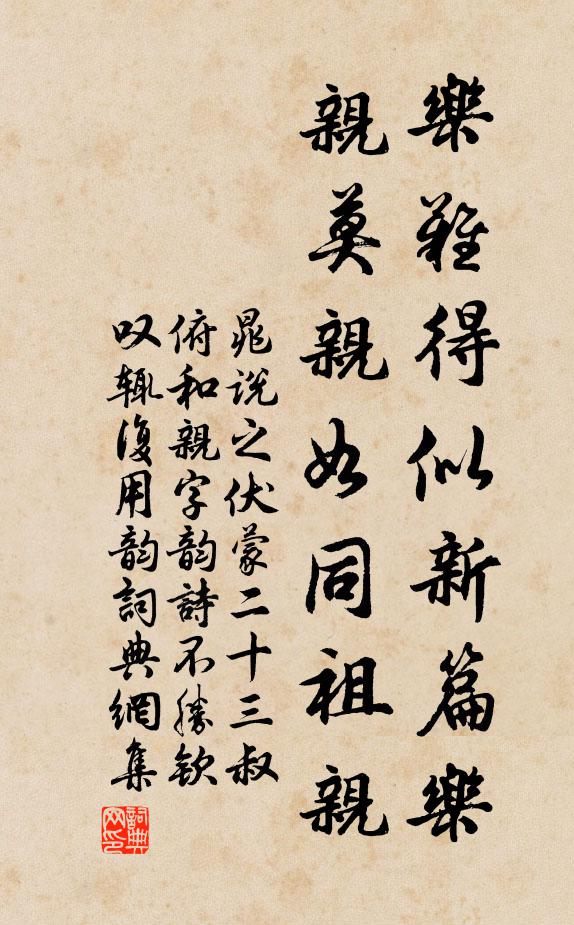 樂難得似新篇樂
親莫親如同祖親
晁説之伏蒙二十三叔
俯和親字韵詩不勝欽
叹輒復用韵詞典網集
詞典
网印